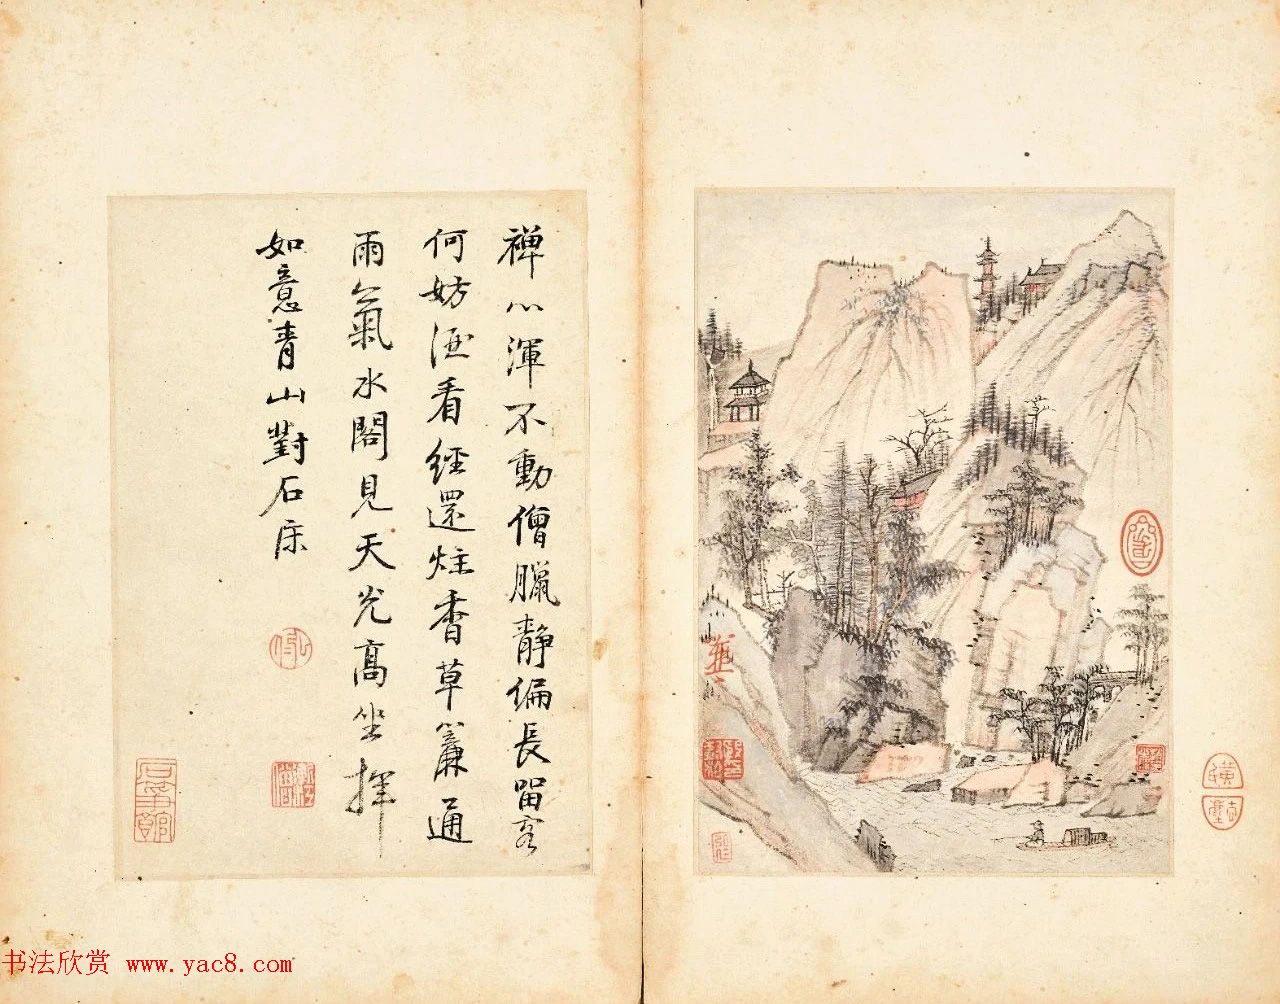 禅心渾不動僧臘静偏長留客
何妨酒看經還炷香草簾通
雨氣水閣見天光高坐揮
如意青山對石床
書法欣赏 www.yac8.com